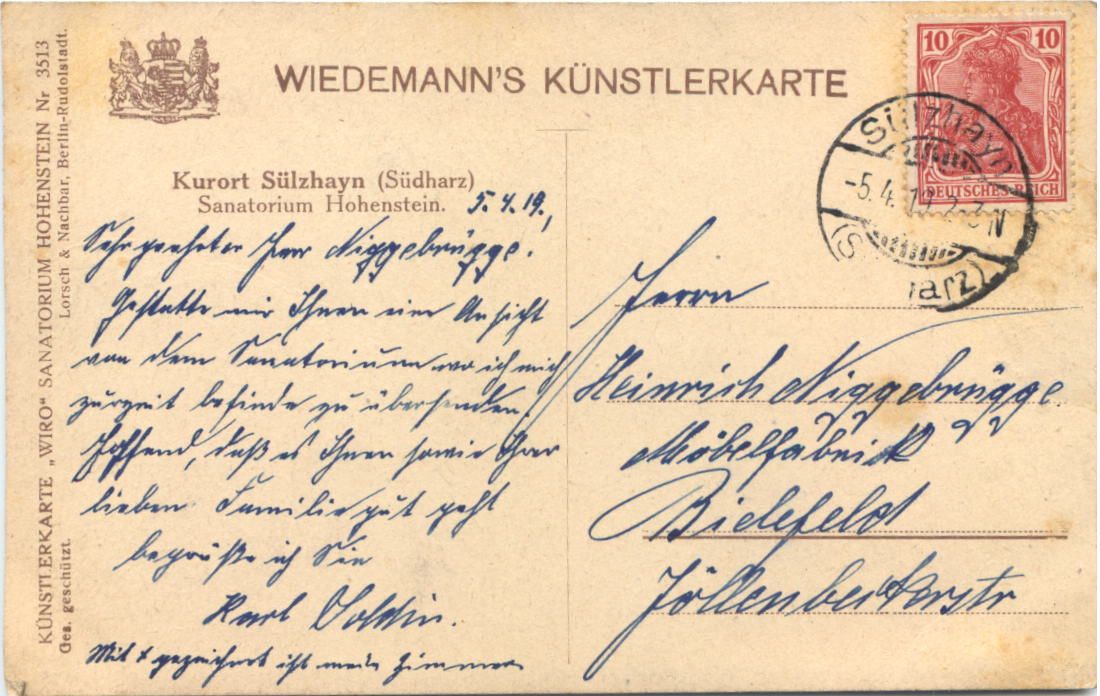 WIEDEMANN'S KÜNSTLERKARTE
10 10
DEUTSCHES REICH
Sülzhayn
-5.4.19.2-3N
(S harz)
KÜNSTLERKARTE „WIRO“ SANATORIUM HOHENSTEIN Nr 3513
Ges. geschützt. Lorsch & Nachbar, Berlin-Rudolstadt.
Kurort Sülzhayn (Südharz)
Sanatorium Hohenstein. 5.4.19.
Sehr geehrter Herr Niggebrügge!
Gestatte mir Ihnen eine Ansicht
von dem Sanatorium wo ich mich
zurzeit befinde zu übersenden.
Hoffend, daß es Ihnen sowie Ihrer
lieben Familie gut geht
begrüße ich Sie
Karl
Mit x gezeichnet ist mein Zimmer
Herrn
Heinrich Niggebrügge
Möbelfabrik
Bielefeld
Jöllenbeckerstr